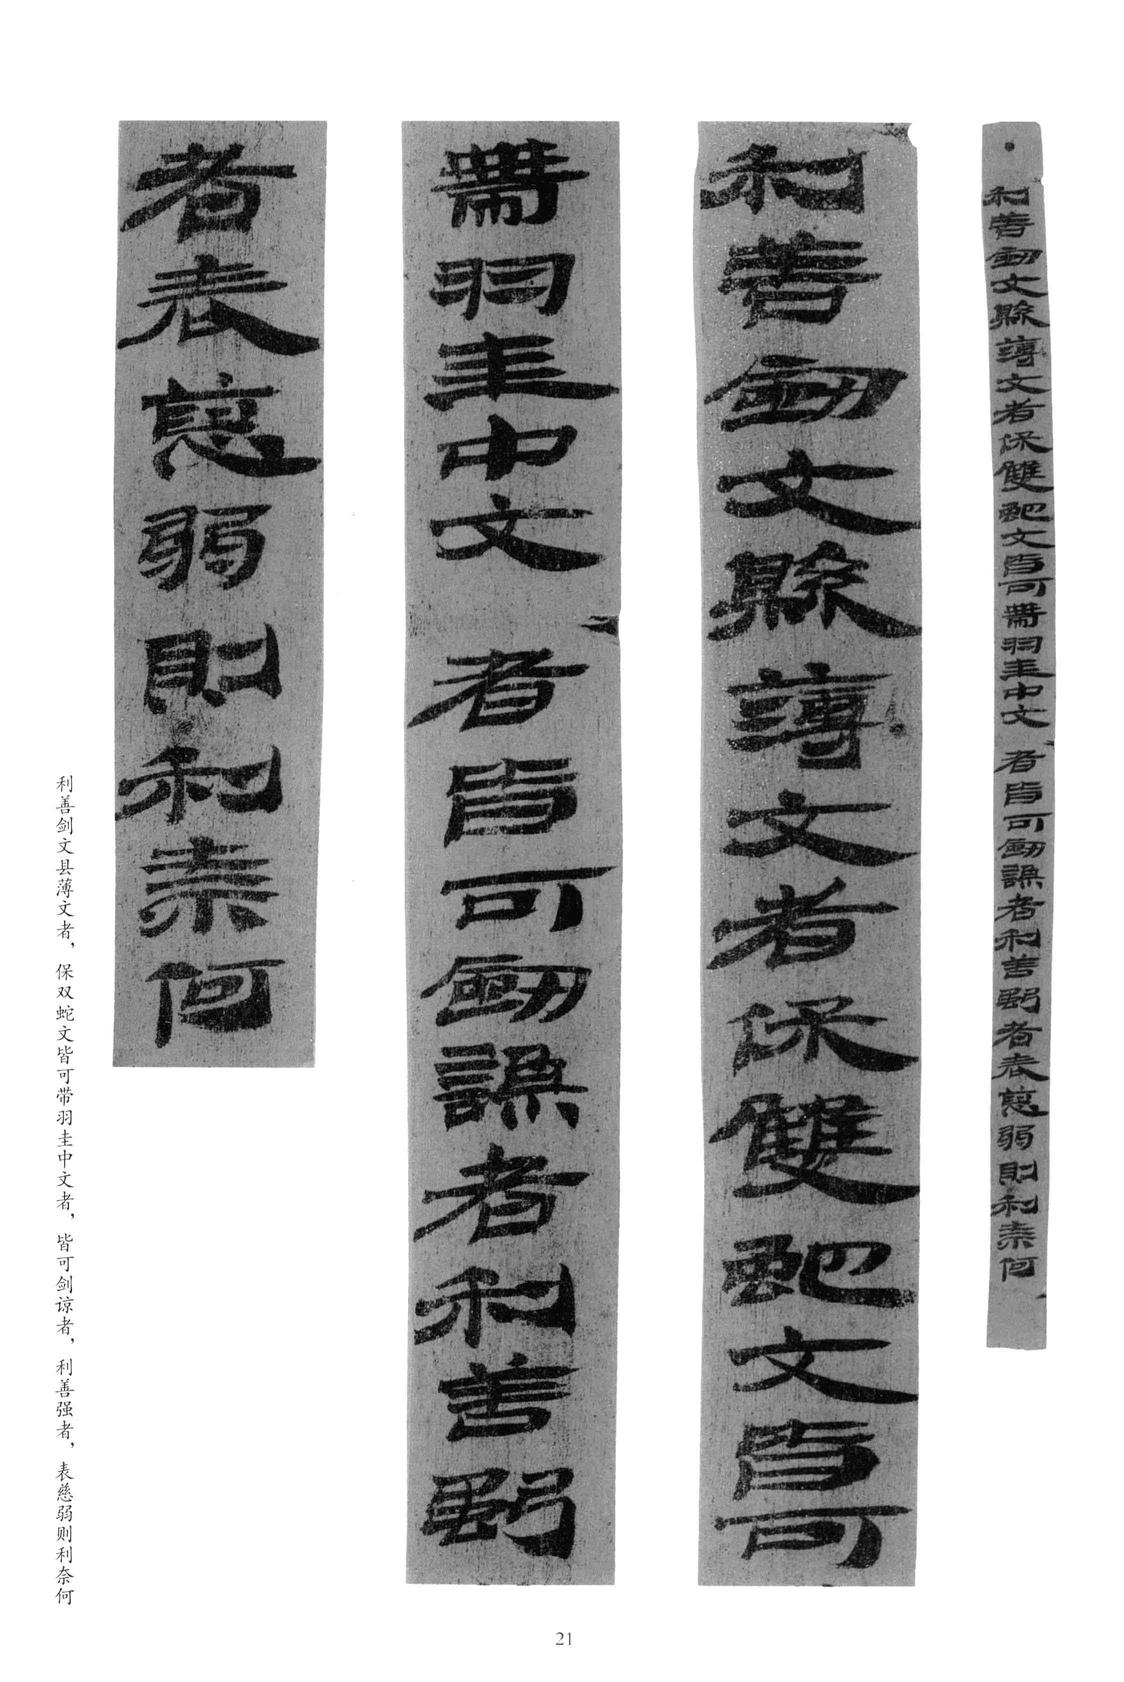 利善劒文縣薄文者保雙虵文皆可帶羽圭中文者皆可劒謙者利善強者表慈弱則利奈何
利善劒文縣薄文者保雙虵文皆可
帶羽圭中文者皆可劒謙者利善強
者表慈弱則利奈何
利善剑文县薄文者，保双蛇文皆可带羽圭中文者，皆可剑谅者，利善强者，表慈弱则利奈何
21